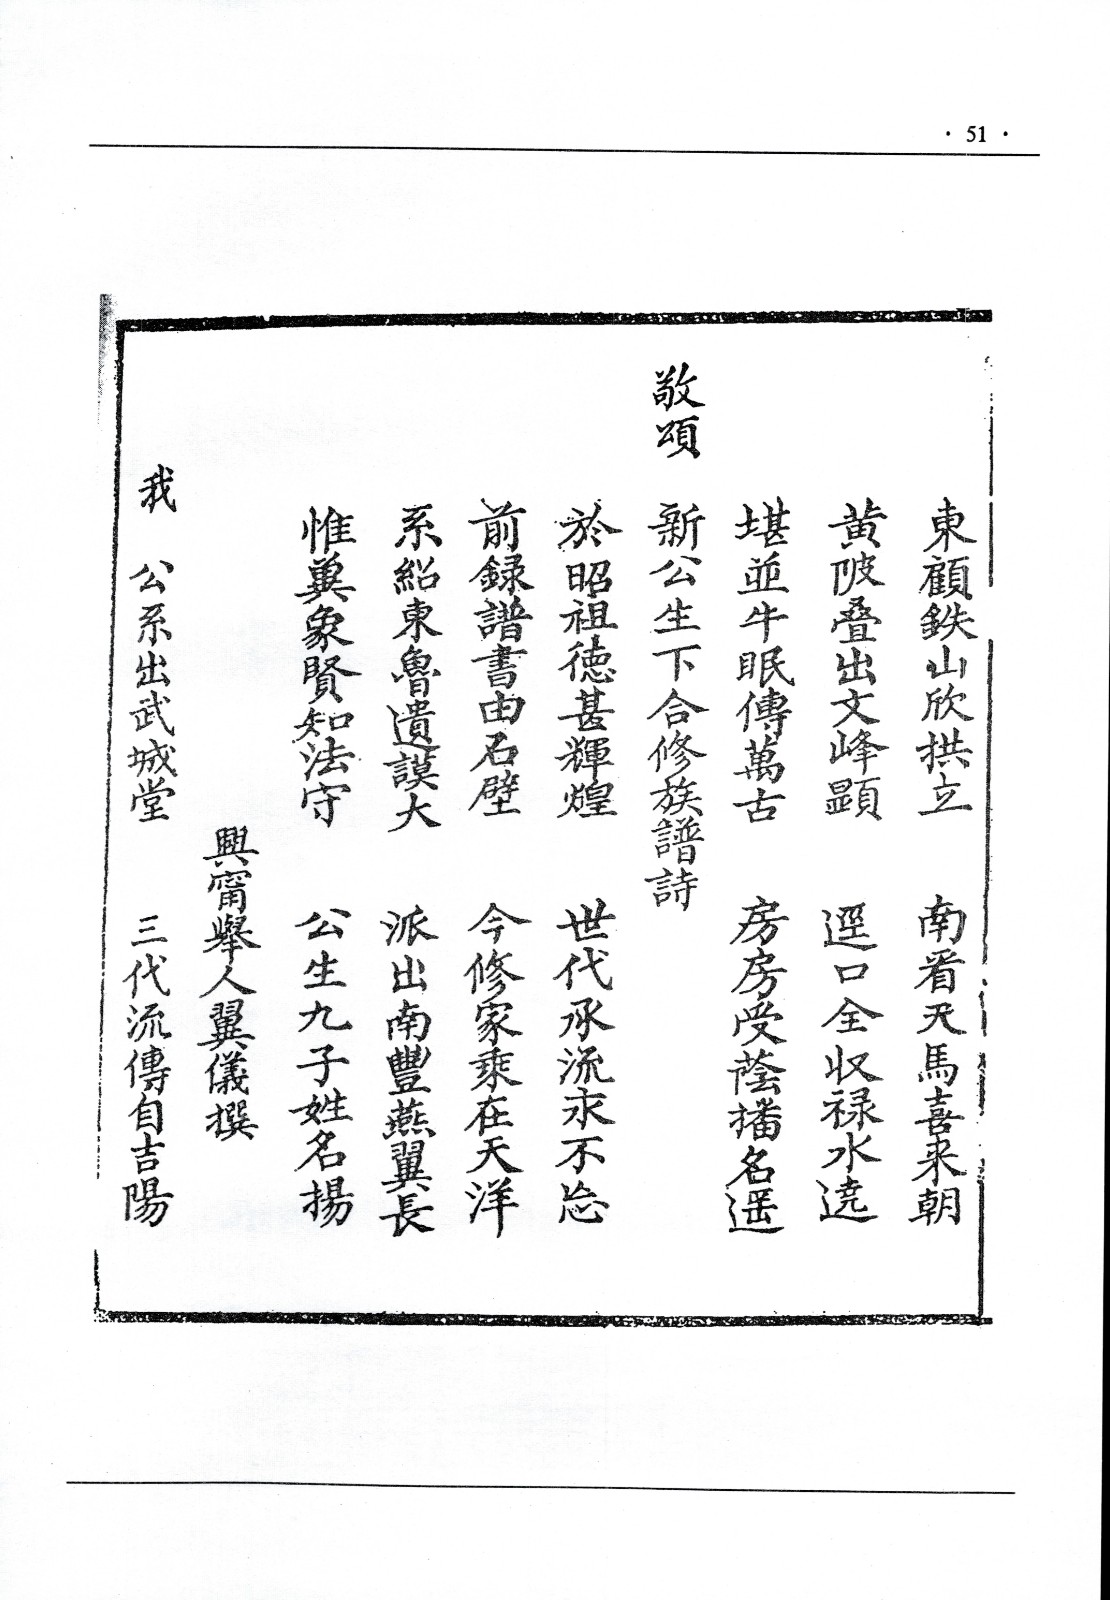 · 51 ·
東顧鉄山欣拱立　南看天馬喜来朝
黄陂叠出文峰顕　逕口全収禄水遶
堪並牛眠傳萬古　房房受蔭播名遥
敬頌　新公生下合修族譜詩
於昭祖徳甚輝煌　世代承流永不忘
前録譜書由石壁　今修家乘在天洋
系紹東魯遺謨大　派出南豐燕翼長
惟冀象賢知法守　公生九子姓名揚
興甯舉人翼儀撰
我　公系出武城堂　三代流傳自吉陽